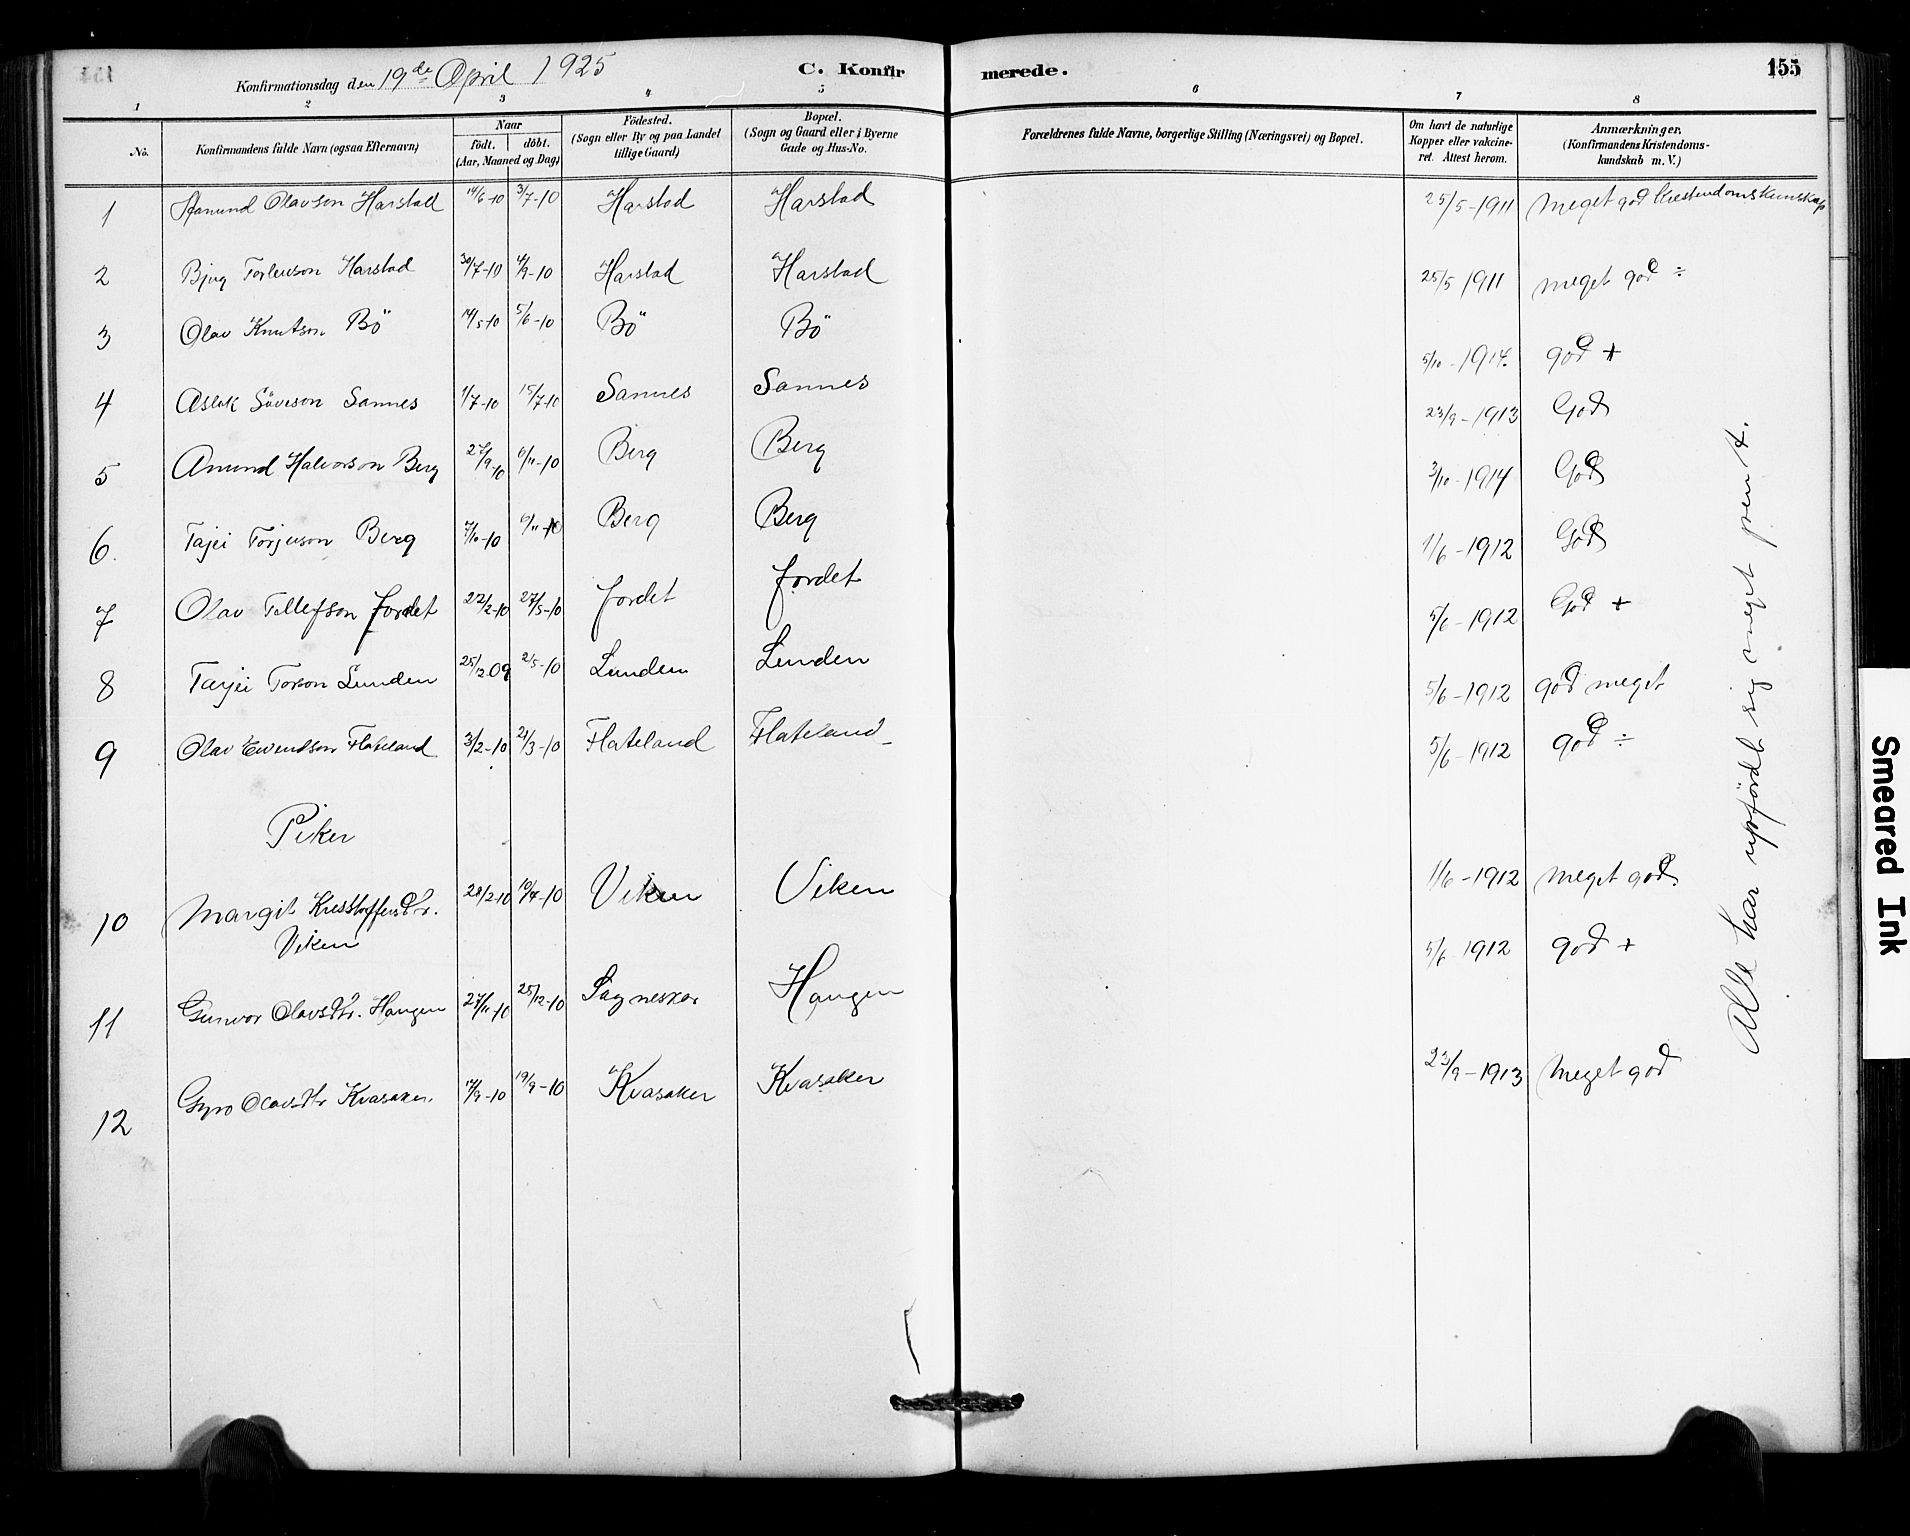 155
Konfirmationsdag den 19de April 1925
C. Konfirmerede.
1 2 3 4 5 6 7 8
No.
Konfirmandens fulde Navn (ogsaa Efternavn)
Naar
födt. döbt.
(Aar, Maaned og Dag)
Födested.
(Sogn eller By og paa Landet
tillige Gaard)
Bopæl.
(Sogn og Gaard eller i Byerne
Gade og Hus-No.
Forældrenes fulde Navne, borgerlige Stilling (Næringsvei) og Bopæl.
Om havt de naturlige
Kopper eller vakcine-
ret. Attest herom.
Anmærkninger.
(Konfirmandens Kristendoms-
kundskab m. V.)
1 Aamund Olavson Harstad 14/6-10 3/7-10 Harstad Harstad 25/5-1911 Meget god Kristendomskunskap
2 Bjug Torleivson Harstad 30/7-10 4/9-10 Harstad Harstad 25/5 1911 meget god ÷
3 Olav Knutson Bö 14/5-10 5/6-10 Bö Bö 5/10-1914. god +
4 Aslak Såveson Sannes 1/7-10 15/7-10 Sannes Sannes 23/9-1913 God
5 Anund Halvorson Berg 27/9-10 6/11-10 Berg Berg 3/10-1914 God
6. Tajei Torjuson Berg 7/10-10 6/11-10 Berg Berg 1/6-1912 God
7 Olav Tellefson Jordet 22/2-10 27/5-10 Jordet Jordet 5/6-1912 God +
8 Tarjei Torson Lunden 25/12 09 2/5-10 Lunden Lunden 5/6-1912 god meget
9 Olav Eivendson Flateland 3/2-10 21/3-10 Flateland Flateland 5/6-1912 god ÷
Piker
10 Margit Kresstoffersdtr. 28/2-10 10/4-10 Viken Viken 1/6-1912 meget god.
Viken
11 Gunvor Olavsdtr. Haugen 27/11-10 25/12-10 Sagneskar Haugen 5/6 1912 god +
12 Gyro Olavsdtr Kvasaker. 17/9-10 19/9-10 Kvasaker Kvasaker 23/9-1913 Meget god
Alle har upfördt sig meget pent.
Smeared Ink